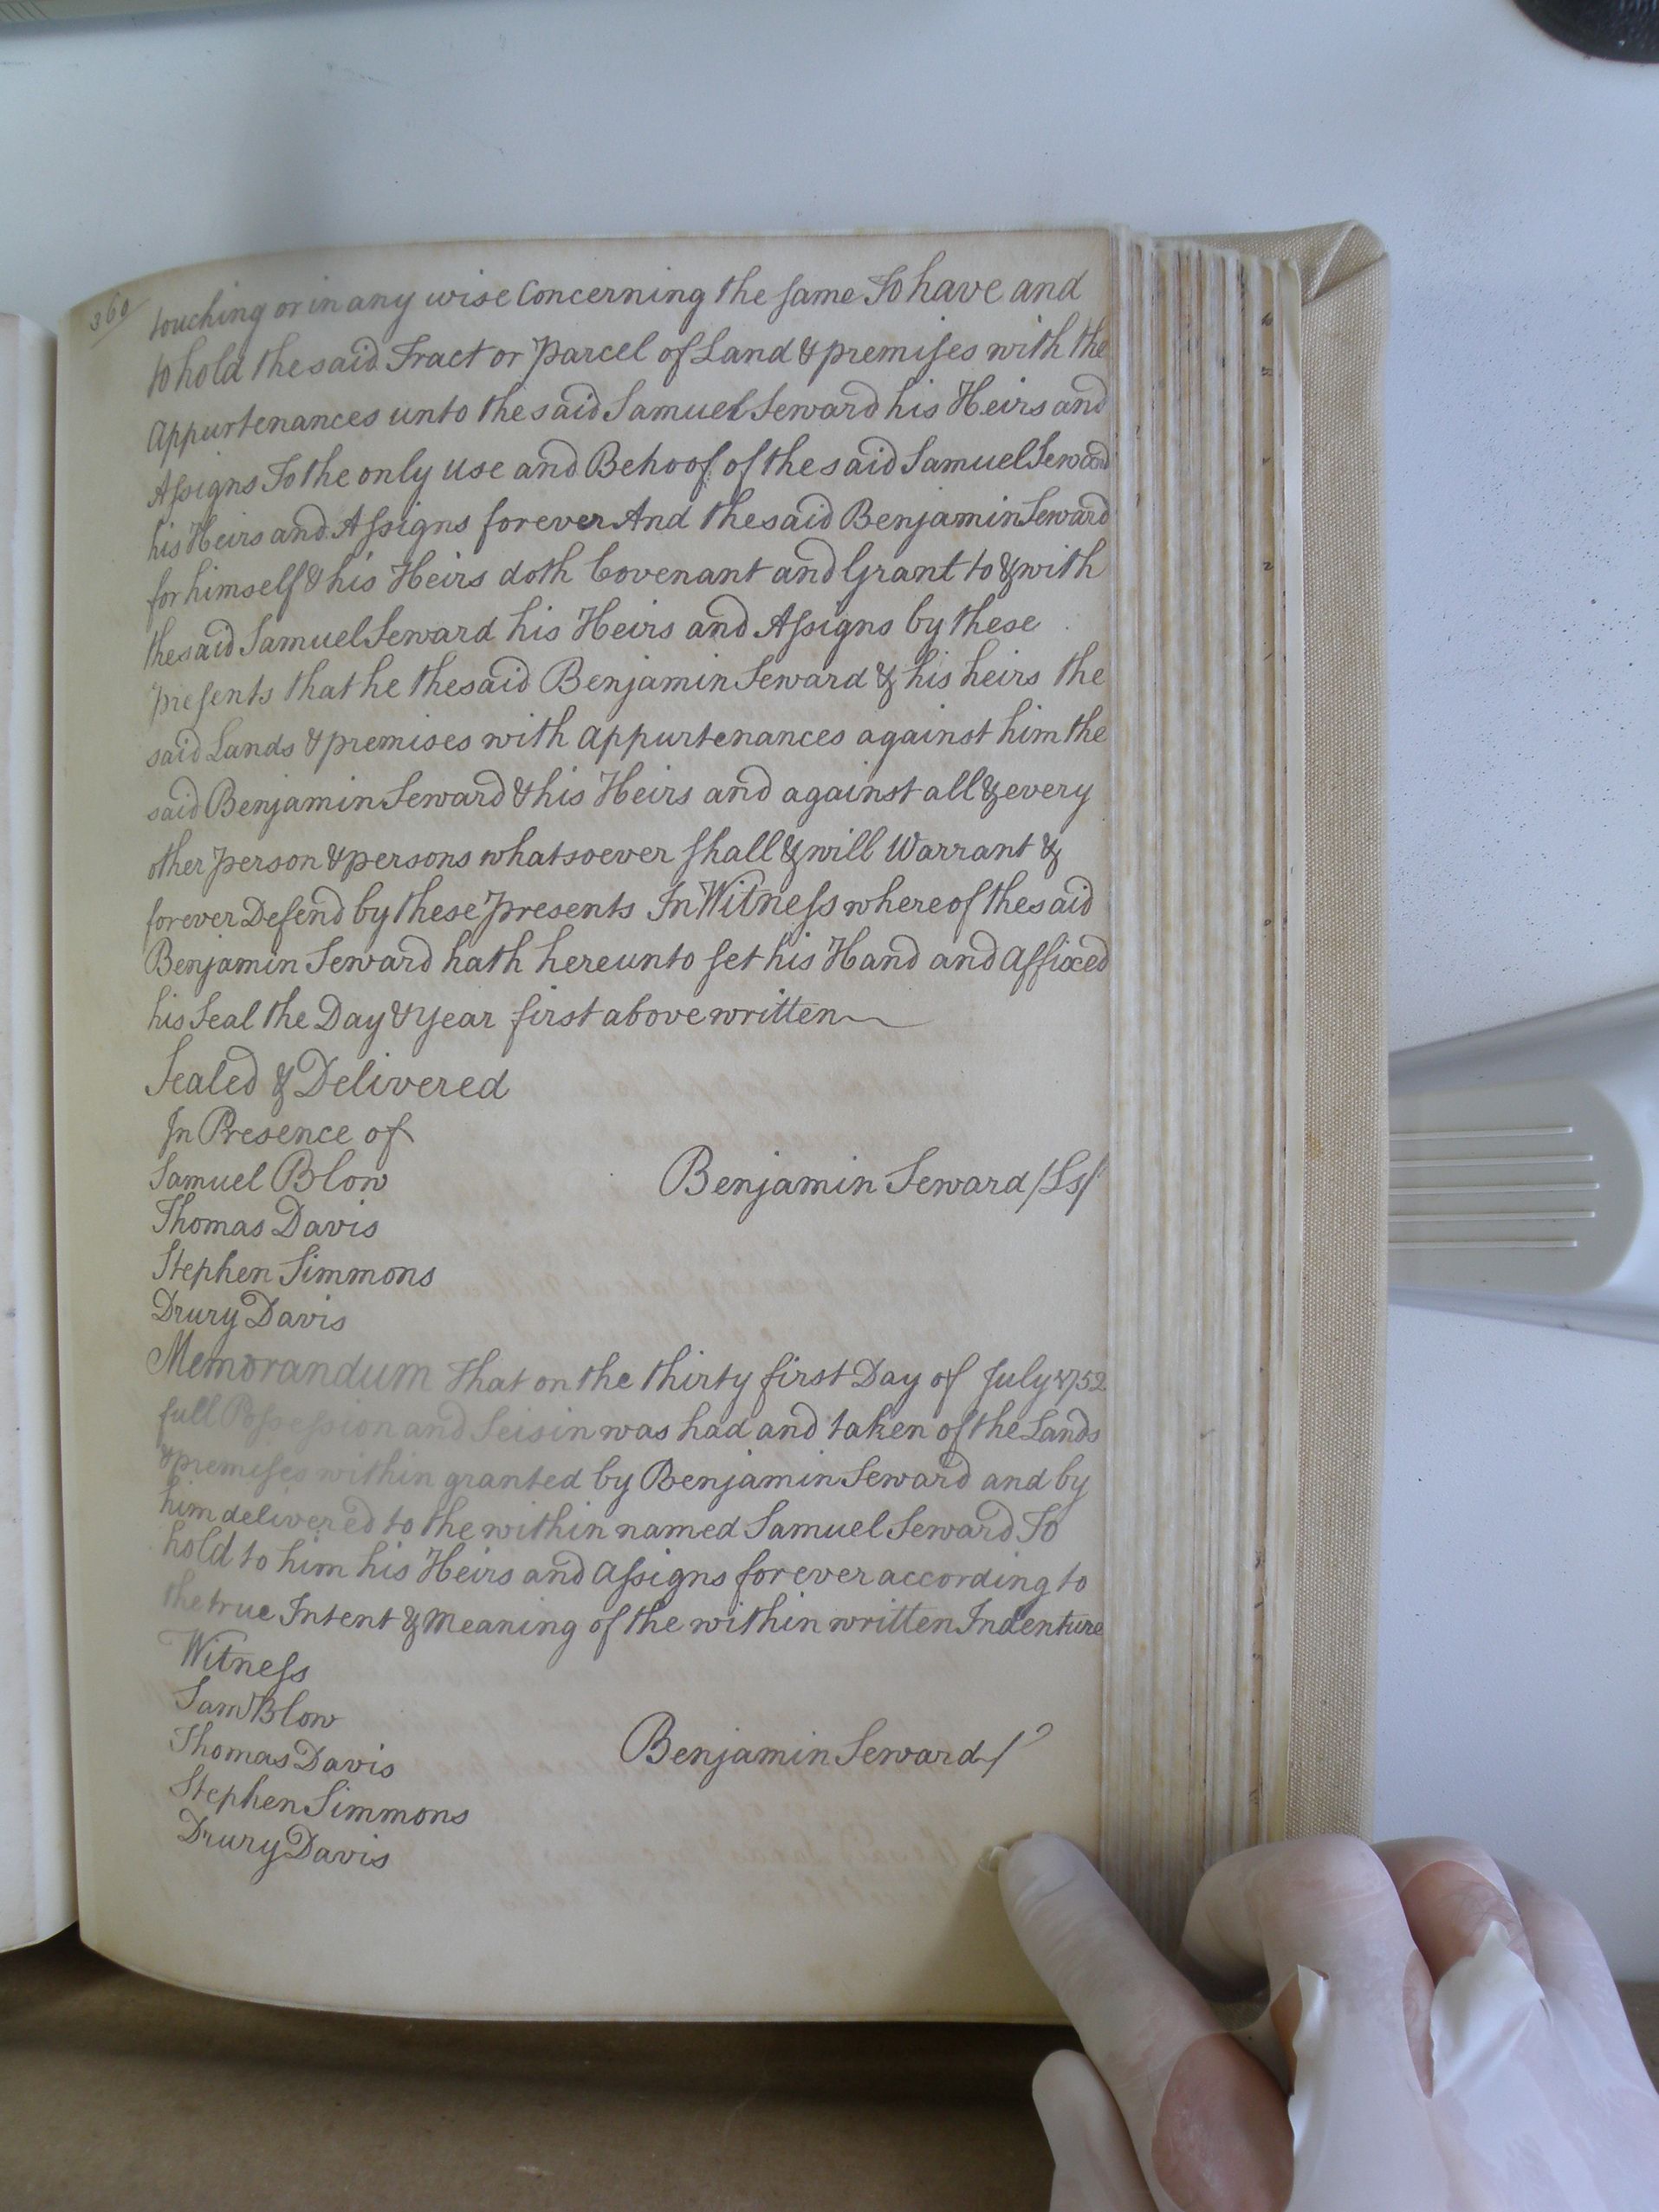 360
touching or in any wise Concerning the same To have and
to hold the said Tract or Parcel of Land & premises with the
Appurtenances unto the said Samuel Seward his Heirs and
Assigns To the only use and Behoof of the said Samuel Seward
his Heirs and Assigns forever And the said Benjamin Seward
for himself & his Heirs doth Covenant and Grant to & with
the said Samuel Seward his Heirs and Assigns by these
presents that he the said Benjamin Seward & his heirs the
said Lands & premises with appurtenances against him the
said Benjamin Seward & his Heirs and against all & every
other person & persons whatsoever shall & will Warrant &
forever Defend by these presents In Witness whereof the said
Benjamin Seward hath hereunto set his Hand and Affixed
his Seal the Day & Year first above written
Sealed & Delivered
In Presence of
Samuel Blow
Benjamin Seward /Ls/
Thomas Davis
Stephen Simmons
Drury Davis
Memorandum That on the thirty first Day of July 1752
full Possession and Seisin was had and taken of the Lands
& premises within granted by Benjamin Seward and by
him delivered to the within named Samuel Seward To
hold to him his Heirs and Assigns forever according to
the true Intent & meaning of the within written Indenture
Witness
Sam Blow
Thomas Davis
Benjamin Seward
Stephen Simmons
Drury Davis